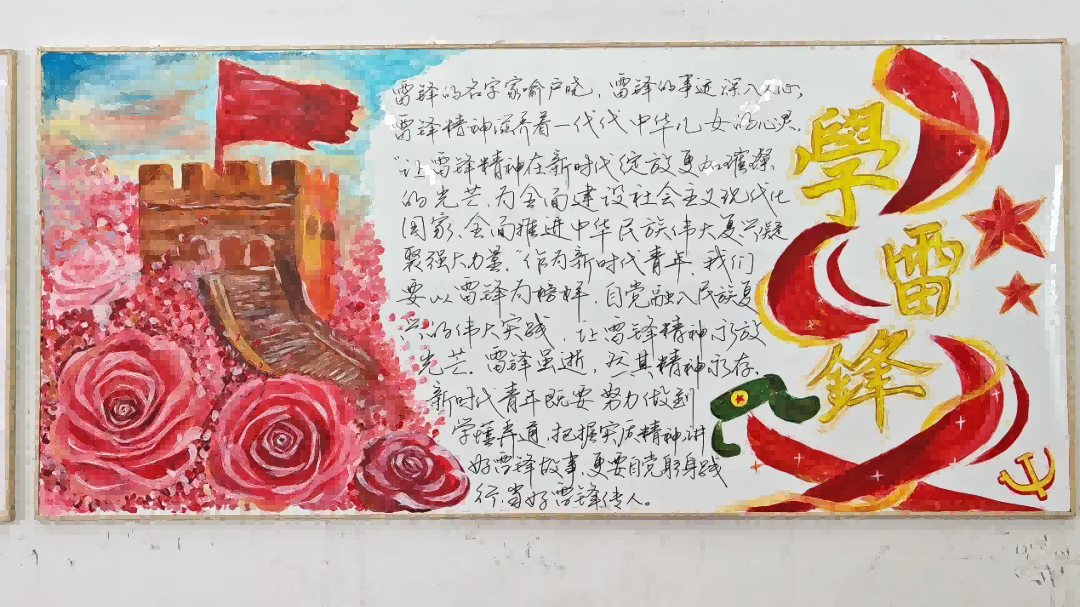 雷锋的名字家喻户晓，雷锋的事迹深入人心，
雷锋精神滋养着一代代中华儿女的心灵。
“让雷锋精神在新时代绽放更加璀璨
的光芒，为全面建设社会主义现代化
国家、全面推进中华民族伟大复兴凝
聚强大力量。”作为新时代青年，我们
要以雷锋为榜样，自觉融入民族复
兴的伟大实践，让雷锋精神永放
光芒。雷锋虽逝，然其精神永存。
新时代青年既要努力做到
学懂弄通，把握实质精神，讲
好雷锋故事，更要自觉躬身践
行，当好雷锋传人。
學
雷
鋒